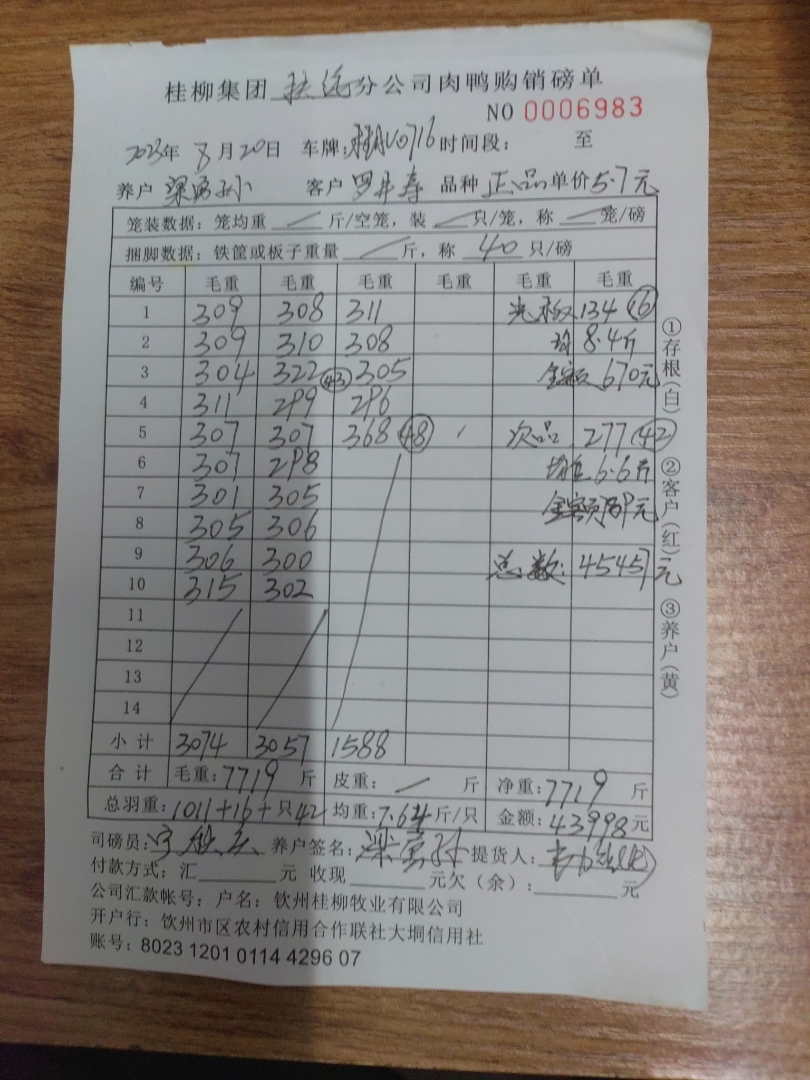 桂柳集团 分公司肉鸭购销磅单
NO 0006983
2023年 8月20日 车牌: 时间段: 至
养户 客户 罗 寿 品种 正品 单价5.7元
笼装数据: 笼均重 / 斤/空笼, 装 / 只/笼, 称 / 笼/磅
捆脚数据: 铁筐或板子重量 / 斤, 称 40 只/磅
编号 毛重 毛重 毛重 毛重 毛重 毛重
1 309 308 311 134 (16)
2 309 310 308 均 8.4斤
3 304 322 (43) 305 金额 670元
4 311 299 296
5 307 307 368 (48) 次品 277 (42)
6 307 298 均重 6.6斤
7 301 305 金额 元
8 305 306
9 306 300 总数: 45457元
10 315 302
11
12
13
14
小计 3074 3057 1588
合计 毛重: 7719 斤 皮重: / 斤 净重: 7719 斤
总羽重: 1011+16+只42 均重: 7.64斤/只 金额: 43998元
司磅员: 养户签名: 提货人:
付款方式: 汇 元 收现 元欠(余): 元
公司汇款帐号: 户名: 钦州桂柳牧业有限公司
开户行: 钦州市区农村信用合作联社大垌信用社
账号: 8023 1201 0114 4296 07
①存根(白) ②客户(红) ③养户(黄)